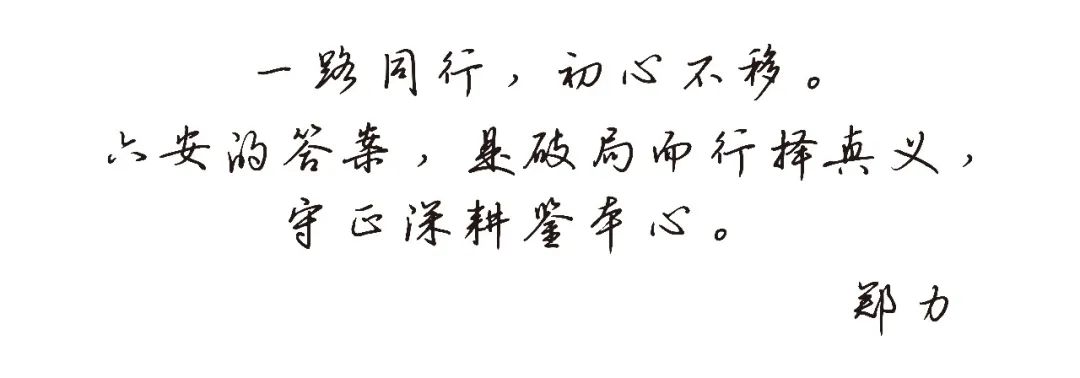 一路同行，初心不移。
六安的答案，是破局而行择真义，
守正深耕鉴本心。
郑力